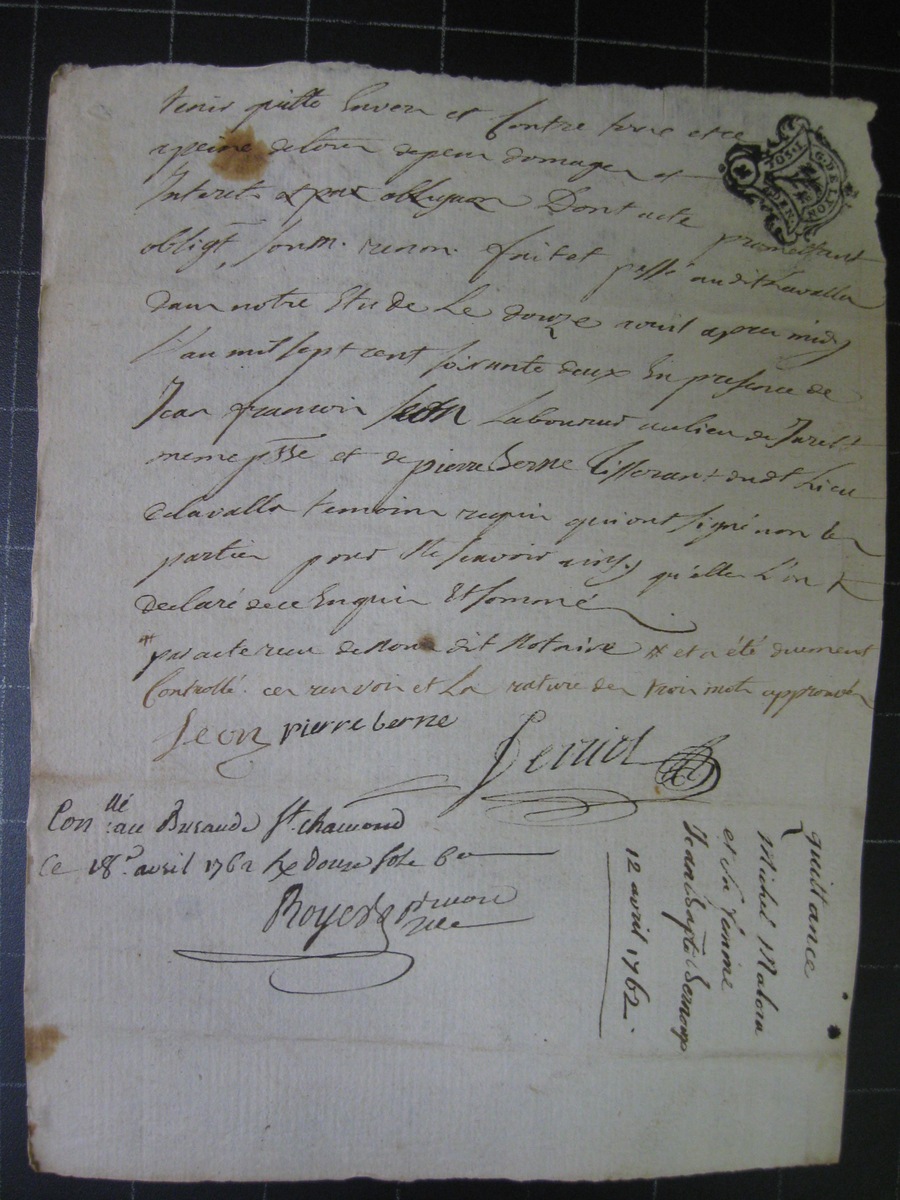 tenir quitte Envers et Contre tous et ce
a peine de tous depens domages et
Interets &par obligaon Dont acte promettant
obligt, soum. renon. fait et passé audit Lavalla
dans notre Etude Le douze avril apres midy
L'an mil sept cent soixante deux En presence de
Jean francois Jeon Laboureur au lieu de
meme psse et de pierre berne tisserant dudt Lieu
delavalla temoins requis qui ont signé non les
parties pour Ne scavoir ainsy qu'elles L'on
declaré de ce Enquis Et sommé
par acte recu de Nous dit Notaire # et a été duement
Controllé. ces renvoir et La rature des trois mots approuvés
Jeon pierre berne
Conllé au Bureau de St. chamond
Ce 18e. avril 1762 Rx Douze sols 6 drs
Royer
quittance
Michel Matora
et sa femme
Jean Bapte
12 avril 1762.